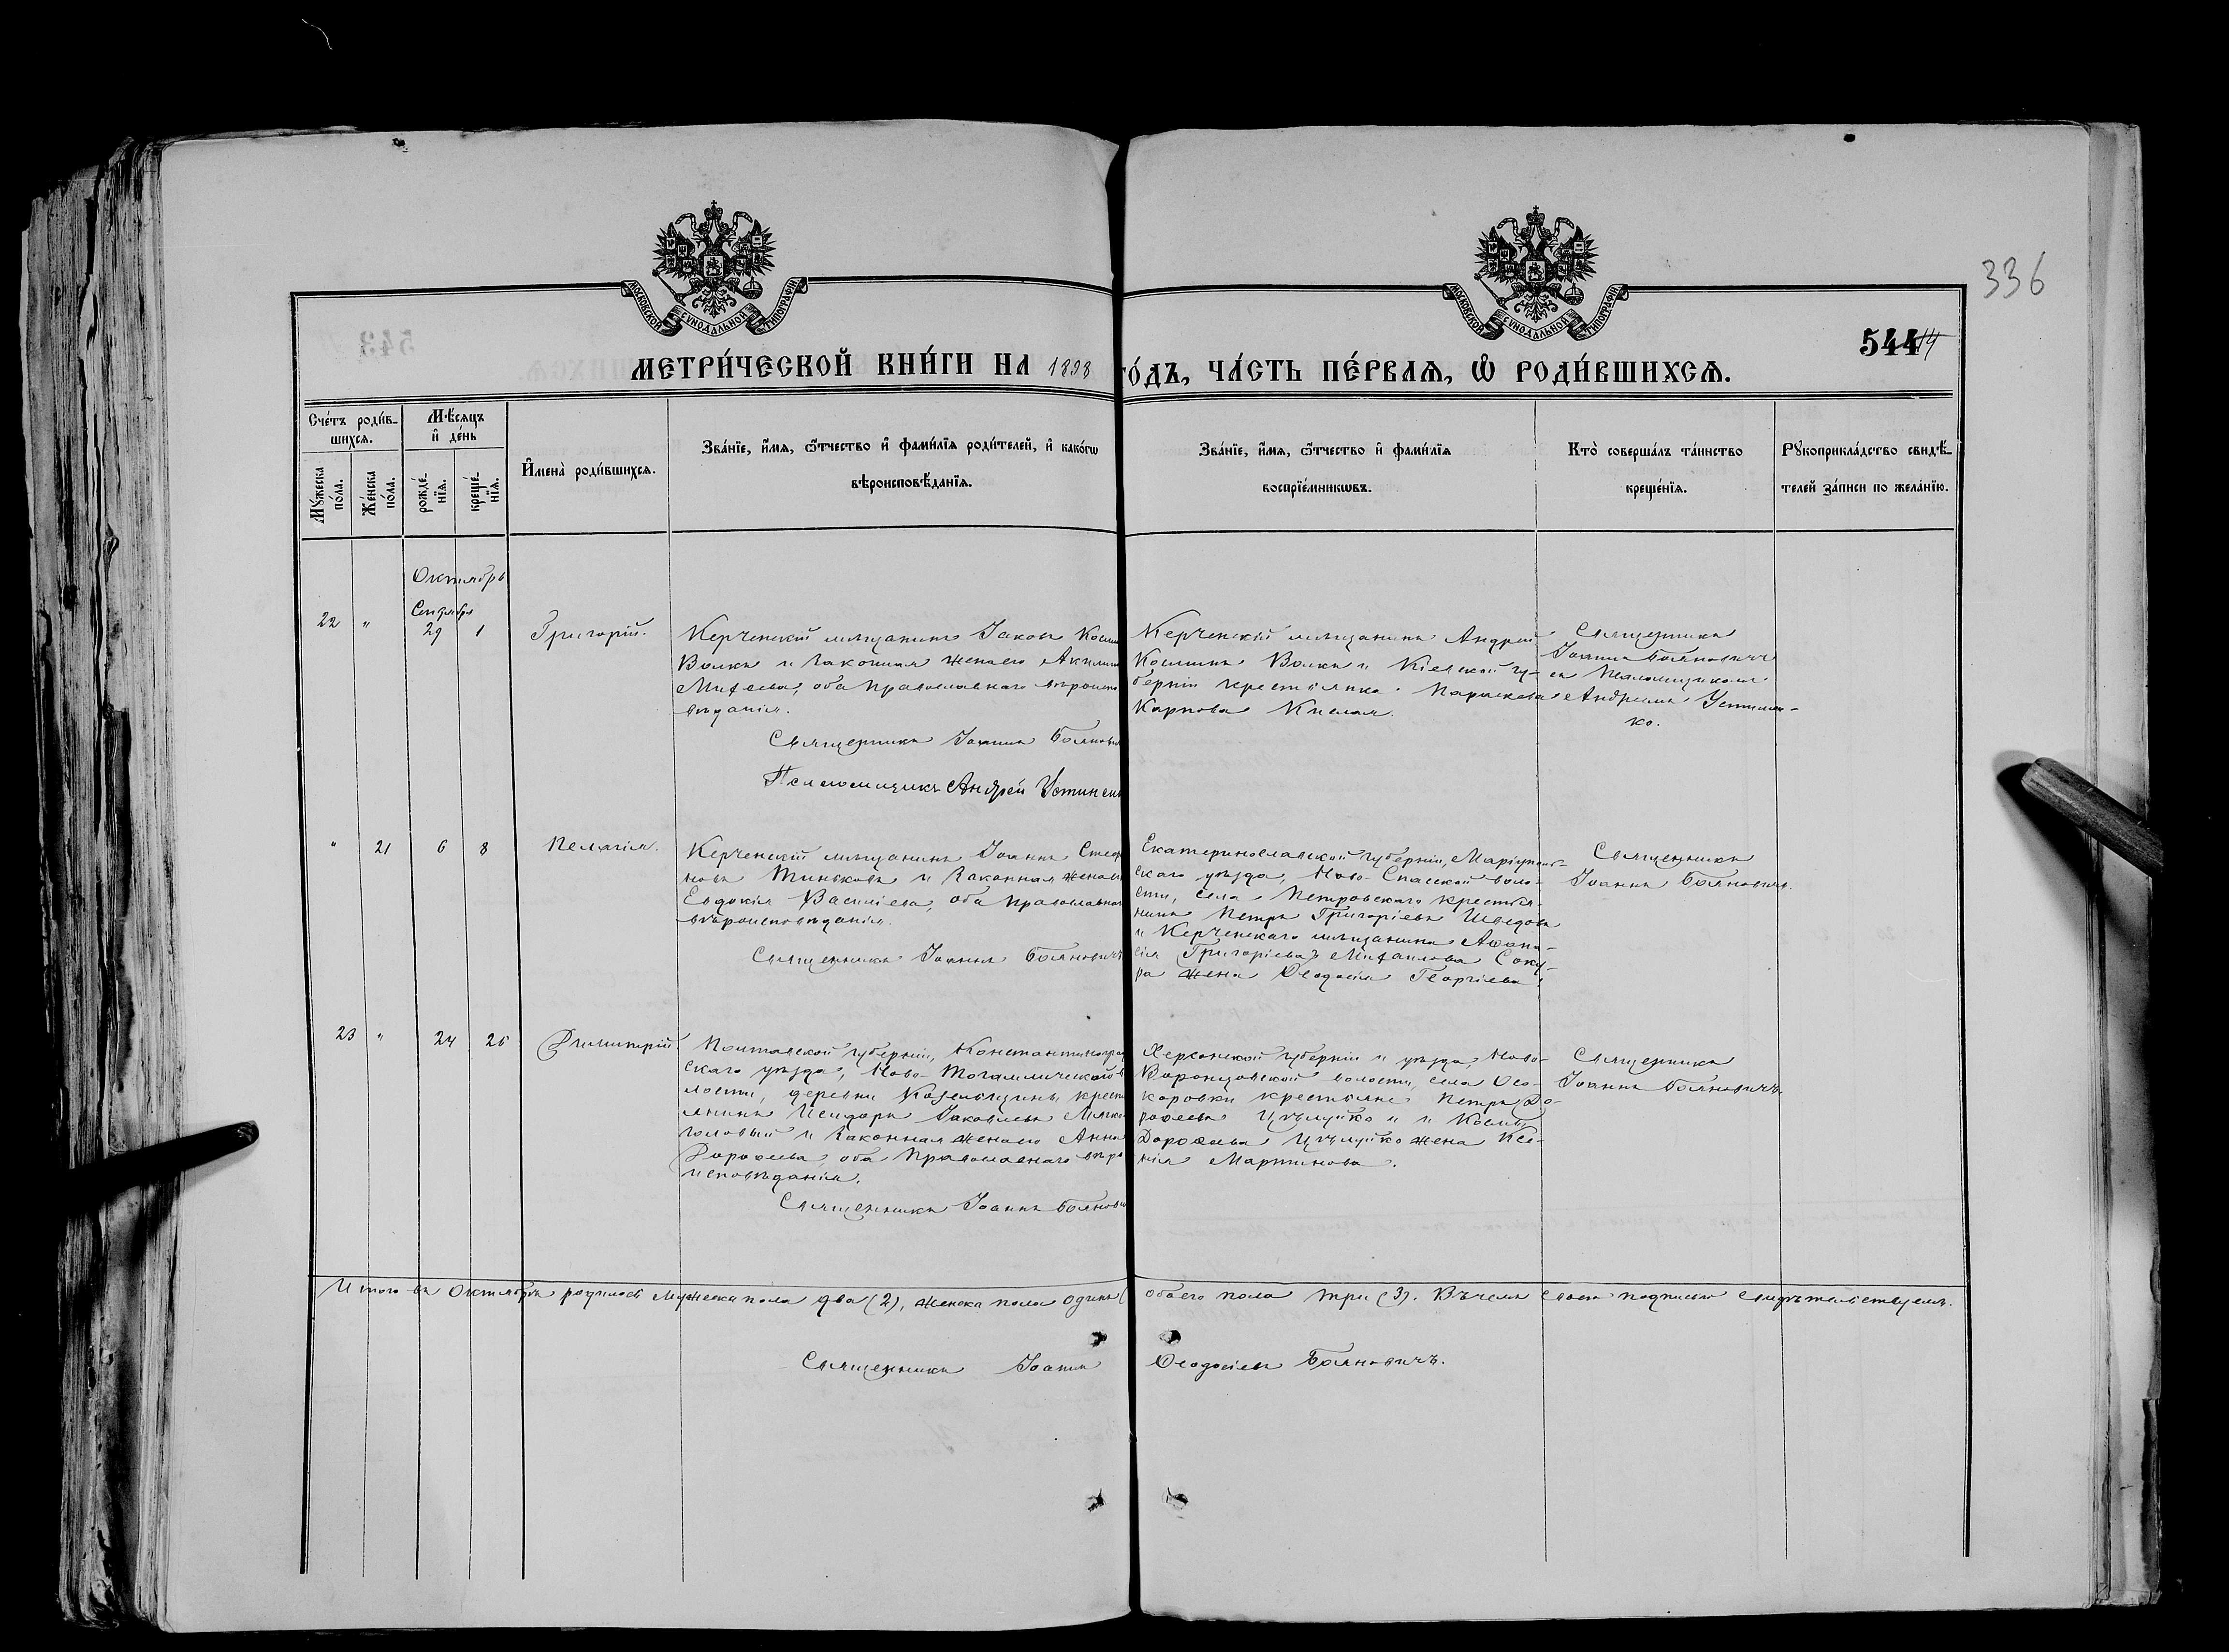 336
МОСКОВСКОЙ СѴНОДАЛЬНОЙ ТИПОГРАФІИ
МОСКОВСКОЙ СѴНОДАЛЬНОЙ ТИПОГРАФІИ
544
МЕТРИ́ЧЕСКОЙ КНИ́ГИ НА 1898 ГО́ДЪ, ЧА́СТЬ ПЕ́РВАѦ, Ѡ РОДИ́ВШИХСѦ.
Сче́тъ роди́в-
шихсѧ.
Мѣ́сѧцъ
и҆ де́нь
Мꙋ́жеска по́ла.
Же́нска по́ла.
рожде́-нїѧ.
креще́-нїѧ.
И҆мена̀ роди́вшихсѧ.
Зва́нїе, и҆́мѧ, ѻ҆́тчество и҆ фами́лїѧ роди́телей, и҆ како́гѡ
вѣроисповѣ́данїѧ.
Зва́нїе, и҆́мѧ, ѻ҆́тчество и҆ фами́лїѧ
воспрїе́мникѡвъ.
Кто̀ соверша́лъ та́инство
креще́нїѧ.
Рꙋкоприкла́дство свидѣ́-
телей за́писи по жела́нїю.
Октябрь
Сентября
22 " 29 1 Григорій.
Керченскій мѣщанинъ Іаковъ
Волкъ и законная жена его
оба православнаго вѣроиспо
вѣданія.
Священникъ Іоаннъ Боянови
Псаломщикъ Андрей Устинен
Керченскій мѣщанинъ Андрей
Косминъ Волкъ и Кіевской гу-
берніи крестьянка Параскева
Карпова
Священникъ
Іоаннъ Бояновичъ
съ Псаломщикомъ
Андреемъ Устинен-
ко.
" 21 6 8 Пелагія.
Керченскій мѣщанинъ Іоаннъ Стеф
новъ и законная жена е
Евдокія Василіева, оба православнаг
вѣроисповѣданія.
Священникъ Іоаннъ Бояновичъ
Екатеринославской губерніи, Маріуполь-
скаго уѣзда, Ново-Спасской воло-
сти, села Петровскаго крестья-
нинъ Петръ Григоріевъ Шведовъ
и Керченскаго мѣщанина Аѳана-
сія (Григоріева) Михаилова Соку-
ра жена Ѳеодосія Георгіева.
Священникъ
Іоаннъ Бояновичъ.
23 " 24 25 Димитрій
Полтавской губерніи, Константиноград
скаго уѣзда, Ново-Тагамлической в
лости, деревни Козельщины крест
янинъ Исидоръ Іаковлевъ Мяко
головый и законная жена его Анна
Дороѳеева, оба православнаго вѣро
исповѣданія.
Священникъ Іоаннъ Боянови
Херсонской губерніи и уѣзда, Ново-
Воронцовской волости, села Осо-
коровки крестьяне Петръ До-
роѳеевъ и Космы
Дороѳеева жена Ксе-
нія Мартинова.
Священникъ
Іоаннъ Бояновичъ.
Итого въ Октябрѣ родилось мужеска пола два (2), женска пола одинъ ( обоего пола три (3). Въ чемъ своею подписью свидѣтельствуемъ.
Священникъ Іоаннъ Ѳеодосіевъ Бояновичъ.